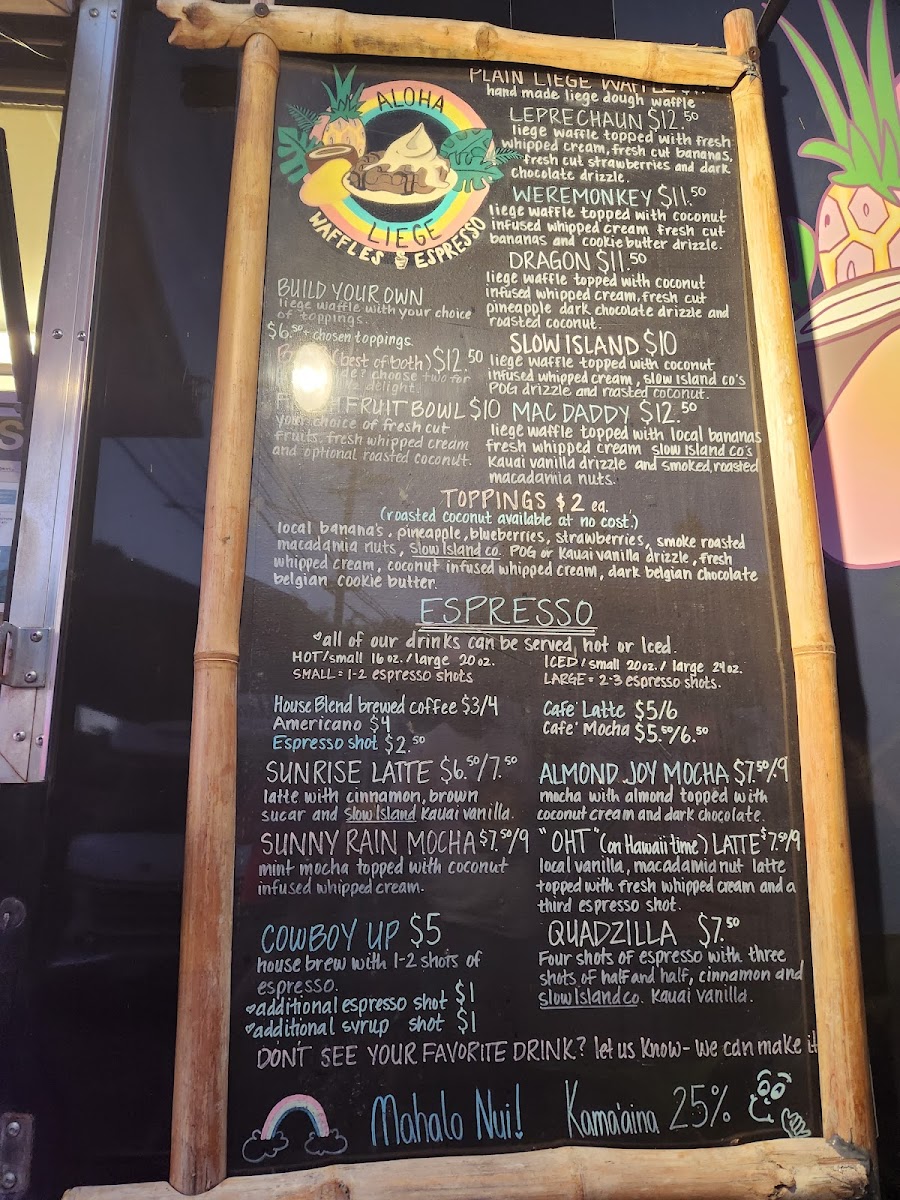 ALOHA
LIEGE
WAFFLES ESPRESSO
BUILD YOUR OWN
liege waffle with your choice
of toppings.
$6.50 + chosen toppings.
(best of both) $12.50
choose two for
delight.
FRUIT BOWL $10
your choice of fresh cut
fruits, fresh whipped cream
and optional roasted coconut.
PLAIN LIEGE WAFFLE
hand made liege dough waffle
LEPRECHAUN $12.50
liege waffle topped with fresh
whipped cream, fresh cut bananas,
fresh cut strawberries and dark
chocolate drizzle.
WEREMONKEY $11.50
liege waffle topped with coconut
infused whipped cream fresh cut
bananas and cookie butter drizzle.
DRAGON $11.50
liege waffle topped with coconut
infused whipped cream, fresh cut
pineapple dark chocolate drizzle and
roasted coconut.
SLOW ISLAND $10
liege waffle topped with coconut
infused whipped cream, slow island co's
POG drizzle and roasted coconut.
MAC DADDY $12.50
liege waffle topped with local bananas
fresh whipped cream slow island co's
Kauai vanilla drizzle and smoked, roasted
macadamia nuts.
TOPPINGS $2 ea.
(roasted coconut available at no cost.)
local banana's, pineapple, blueberries, strawberries, smoke roasted
macadamia nuts, slow Island co. POG or Kauai vanilla drizzle, fresh
whipped cream, coconut infused whipped cream, dark belgian chocolate
belgian cookie butter.
ESPRESSO
all of our drinks can be served, hot or Iced.
HOT/small 16 oz./large 20 oz.
SMALL = 1-2 espresso shots
ICED/small 20oz./large 24oz.
LARGE = 2-3 espresso shots.
House Blend brewed coffee $3/4
Americano $4
Espresso shot $2.50
Cafe' Latte $5/6
Cafe' Mocha $5.50/6.50
SUNRISE LATTE $6.50/7.50
latte with cinnamon, brown
sugar and slow Island Kauai vanilla.
ALMOND JOY MOCHA $7.50/9
mocha with almond topped with
coconut cream and dark chocolate.
SUNNY RAIN MOCHA $7.50/9
mint mocha topped with coconut
infused whipped cream.
"OHT" (on Hawaii time) LATTE $7.50/9
local vanilla, macadamia nut latte
topped with fresh whipped cream and a
third espresso shot.
COWBOY UP $5
house brew with 1-2 shots of
espresso.
additional espresso shot $1
additional syrup shot $1
QUADZILLA $7.50
Four shots of espresso with three
shots of half and half, cinnamon and
slow Island co. Kauai vanilla.
DON'T SEE YOUR FAVORITE DRINK? let us know - we can make it
Mahalo Nui!
Kama'aina 25%